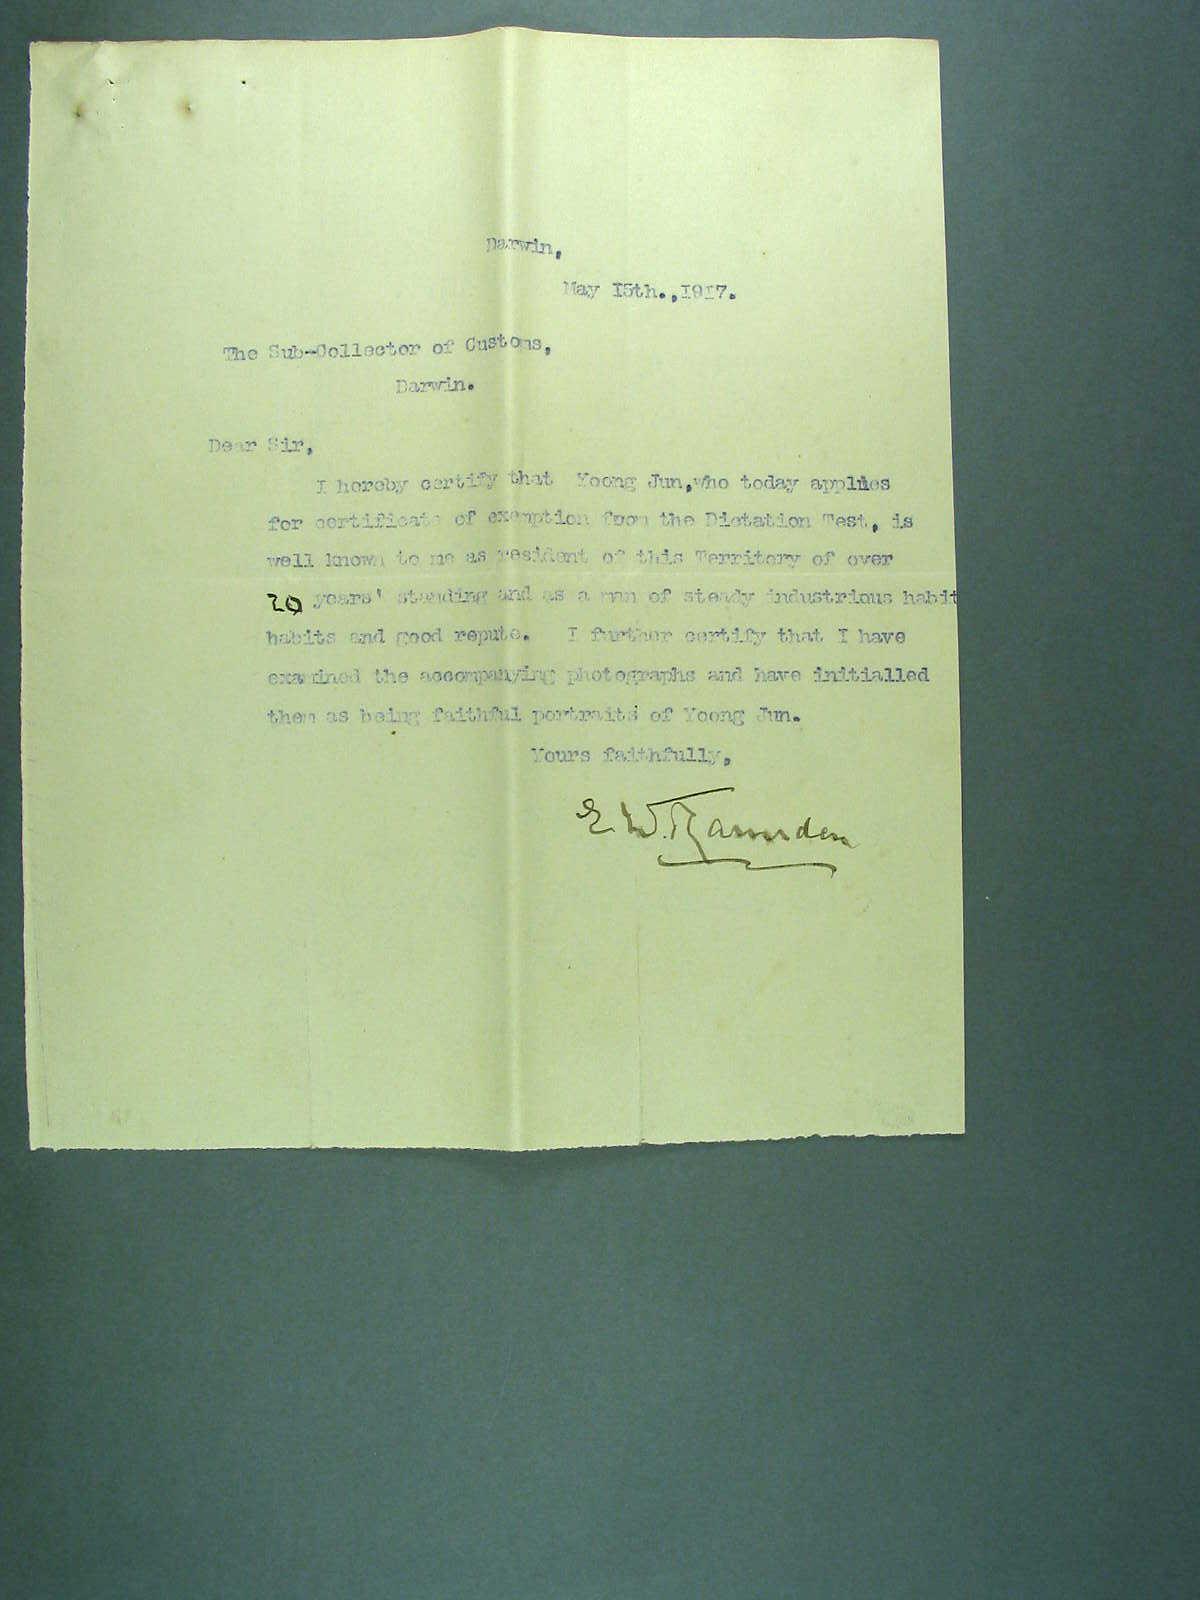 Darwin,
May 15th.,1917.
The Sub-Collector of Customs,
Darwin.
Dear Sir,
I hereby certify that Yoong Jun,who today applies
for certificate of exemption from the Dictation Test, is
well known to me as resident of this Territory of over
20 years' standing and as a man of steady industrious habit
habits and good repute. I further certify that I have
examined the accompanying photographs and have initialled
them as being faithful portraits of Yoong Jun.
Yours faithfully,
E. W. Ramsden